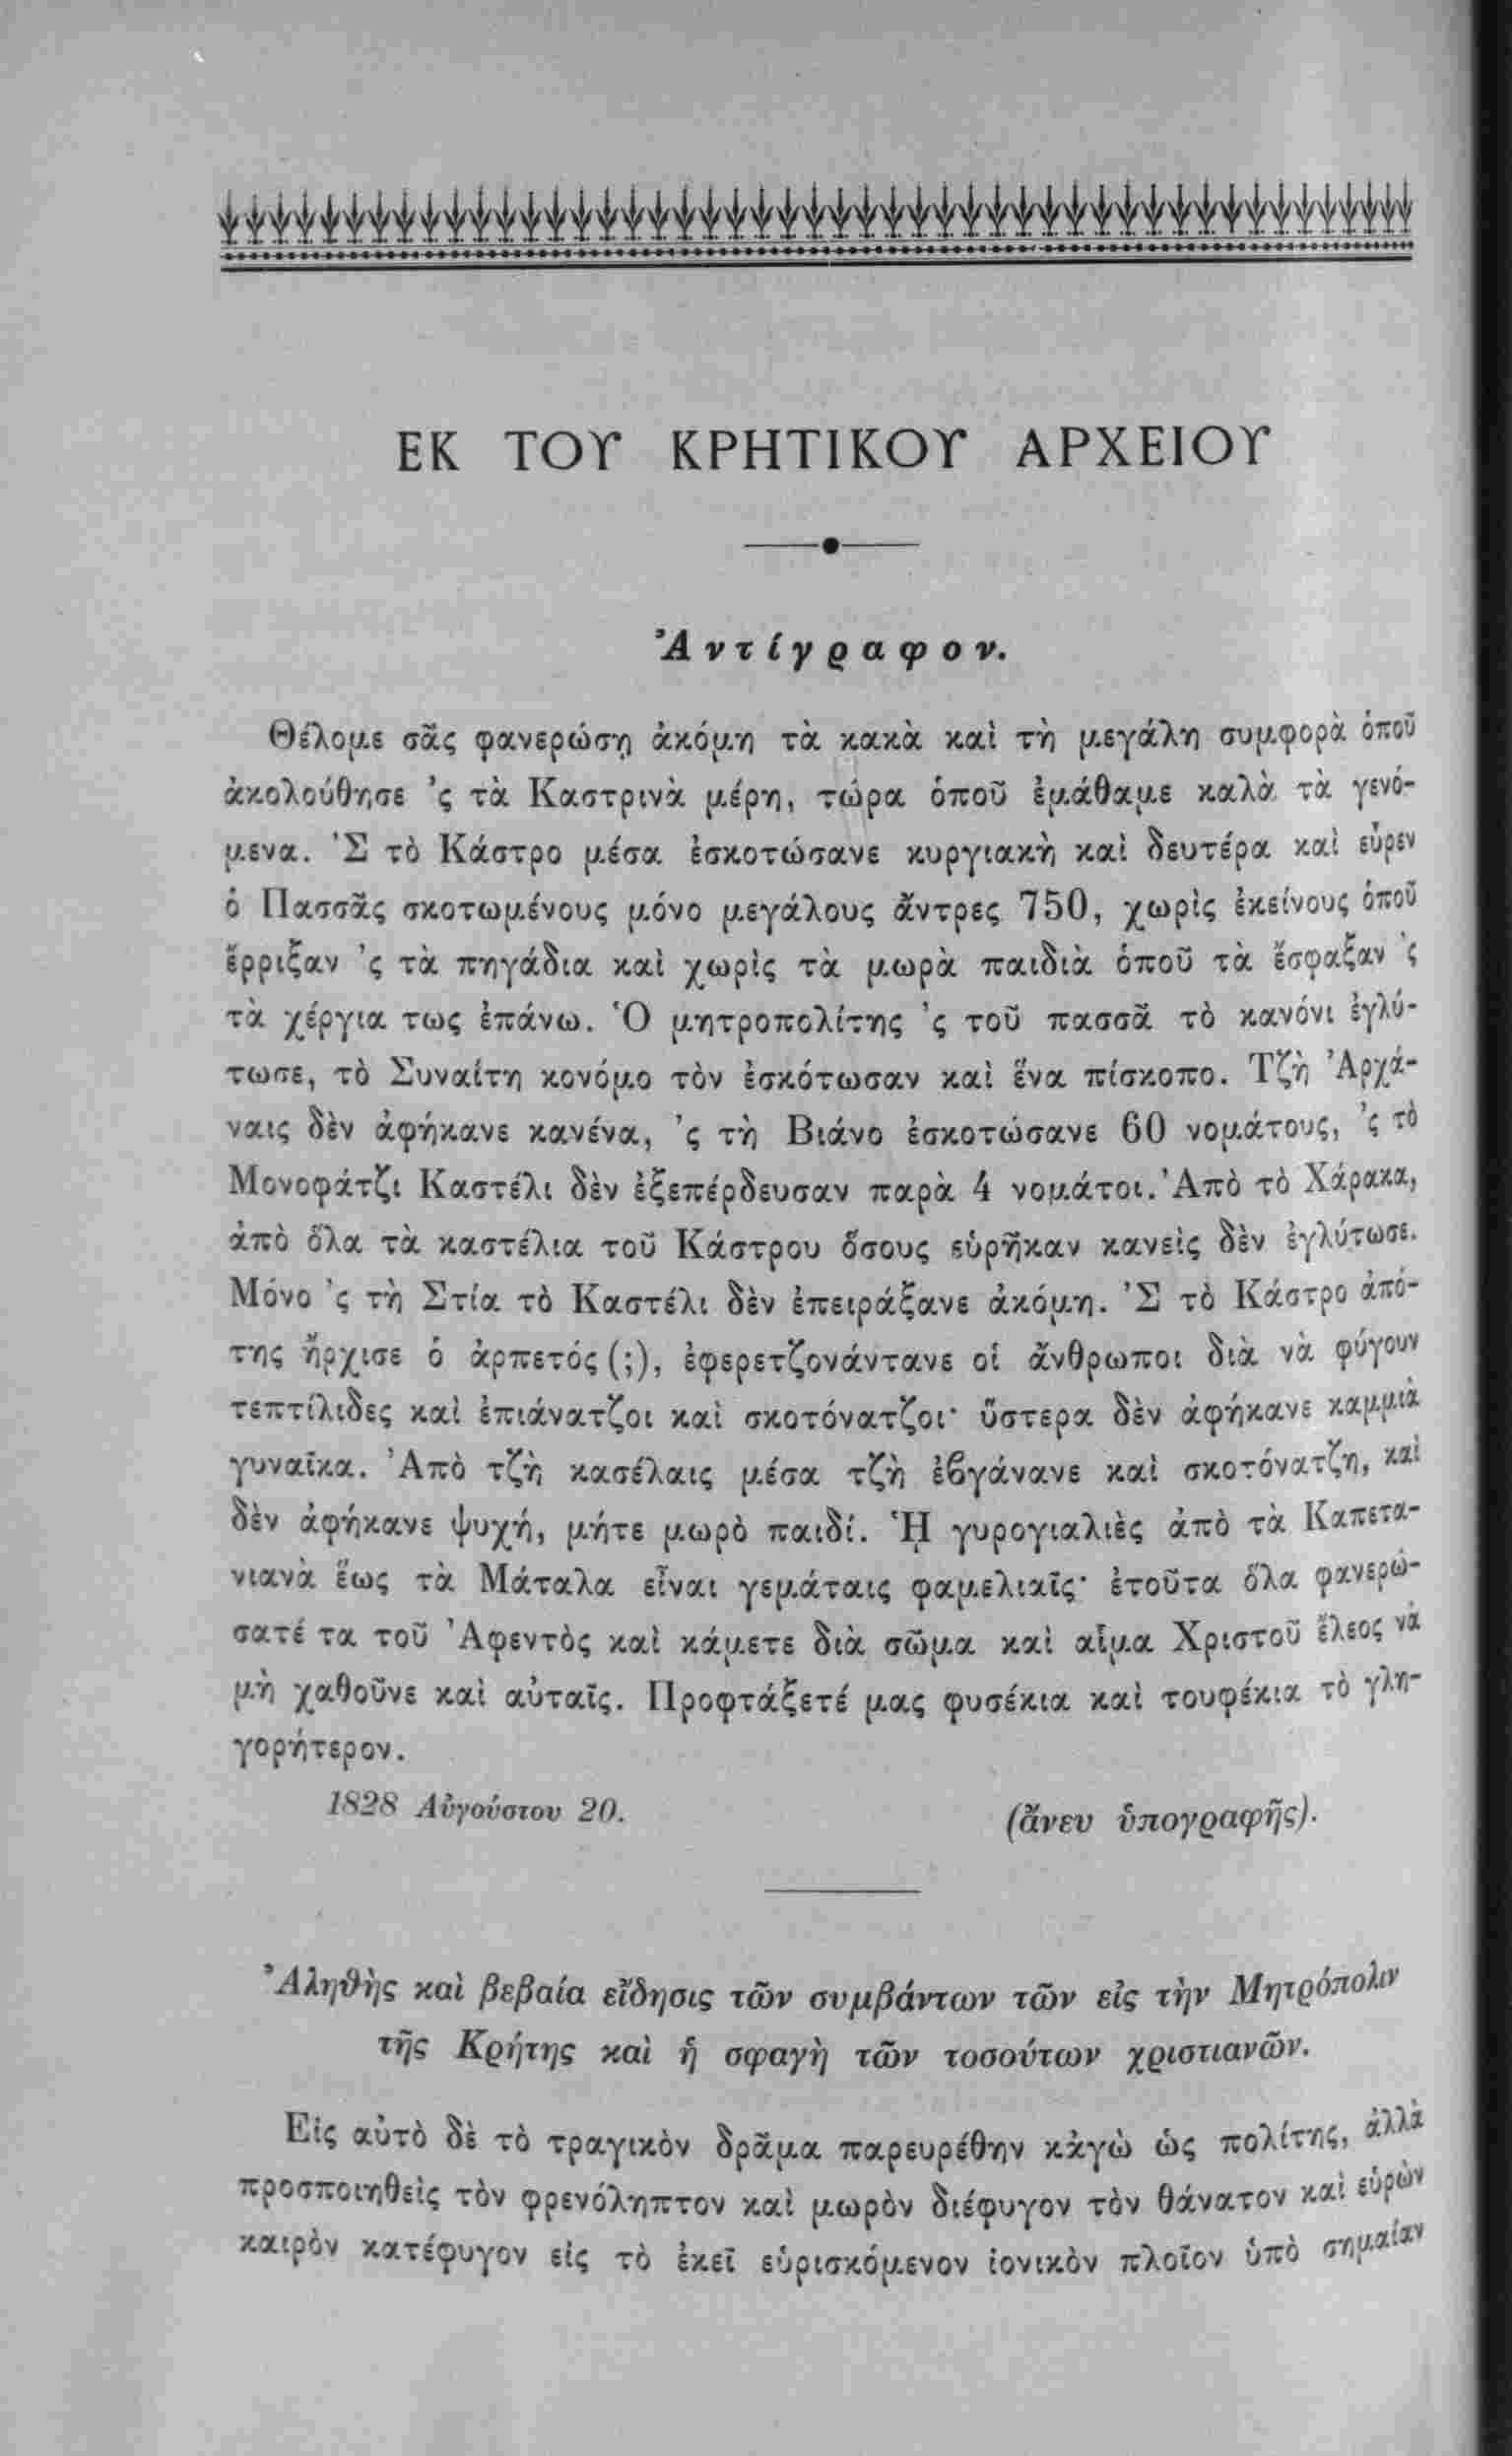 ΕΚ ΤΟΥ ΚΡΗΤΙΚΟΥ ΑΡΧΕΙΟΥ
Ἀντίγραφον.
Θέλομε σᾶς φανερώσῃ ἀκόμη τὰ κακὰ καὶ τὴ μεγάλη συμφορὰ ὁποῦ
ἀκολούθησε ’ς τὰ Καστρινὰ μέρη, τώρα ὁποῦ ἐμάθαμε καλὰ τὰ γενό-
μενα. Ἐ Σ τὸ Κάστρο μέσα ἐσκοτώσανε κυργιακὴ καὶ δευτέρα καὶ εὗρεν
ὁ Πασσᾶς σκοτωμένους μόνο μεγάλους ἄντρες 750, χωρὶς ἐκείνους ὁποῦ
ἔρριξαν ’ς τὰ πηγάδια καὶ χωρὶς τὰ μωρὰ παιδιὰ ὁποῦ τὰ ἔσφαξαν ’ς
τὰ χέργια τως ἐπάνω. Ὁ μητροπολίτης ’ς τοῦ πασσᾶ τὸ κανόνι ἐγλύ-
τωσε, τὸ Συναίτη κονόμο τὸν ἐσκότωσαν καὶ ἕνα πίσκοπο. Τζὴ Ἀρχά-
ναις δὲν ἀφήκανε κανένα, ’ς τὴ Βιάνο ἐσκοτώσανε 60 νομάτους, ’ς τὸ
Μονοφάτζι Καστέλι δὲν ἐξεπέρδευσαν παρὰ 4 νομάτοι. Ἀπὸ τὸ Χάρακα,
ἀπὸ ὅλα τὰ καστέλια τοῦ Κάστρου ὅσους εὑρῆκαν κανεὶς δὲν ἐγλύτωσε.
Μόνο ’ς τὴ Στία τὸ Καστέλι δὲν ἐπειράξανε ἀκόμη. ’Σ τὸ Κάστρο ἀπό-
της ἤρχισε ὁ ἀρπετός (;), ἐφερετζονάντανε οἱ ἄνθρωποι διὰ νὰ φύγουν
τεπτίλιδες καὶ ἐπιάνατζοι καὶ σκοτόνατζοι· ὕστερα δὲν ἀφήκανε καμμιὰ
γυναῖκα. Ἀπὸ τζὴ κασέλαις μέσα τζὴ ἐβγάνανε καὶ σκοτόνατζη, καὶ
δὲν ἀφήκανε ψυχή, μήτε μωρὸ παιδί. Ἡ γυρογιαλιὲς ἀπὸ τὰ Καπετα-
νιανὰ ἕως τὰ Μάταλα εἶναι γεμάταις φαμελιαῖς· ἐτοῦτα ὅλα φανερώ-
σατέ τα τοῦ Ἀφεντὸς καὶ κάμετε διὰ σῶμα καὶ αἷμα Χριστοῦ ἔλεος νὰ
μὴ χαθοῦνε καὶ αὐταῖς. Προφτάξετέ μας φυσέκια καὶ τουφέκια τὸ γλη-
γορήτερον.
1828 Αὐγούστου 20.
(ἄνευ ὑπογραφῆς).
Ἀληθὴς καὶ βεβαία εἴδησις τῶν συμβάντων τῶν εἰς τὴν Μητρόπολιν
τῆς Κρήτης καὶ ἡ σφαγὴ τῶν τοσούτων χριστιανῶν.
Εἰς αὐτὸ δὲ τὸ τραγικὸν δρᾶμα παρευρέθην κἀγὼ ὡς πολίτης, ἀλλὰ
προσποιηθεὶς τὸν φρενόληπτον καὶ μωρὸν διέφυγον τὸν θάνατον καὶ εὑρὼν
καιρὸν κατέφυγον εἰς τὸ ἐκεῖ εὑρισκόμενον ἰονικὸν πλοῖον ὑπὸ σημαίαν